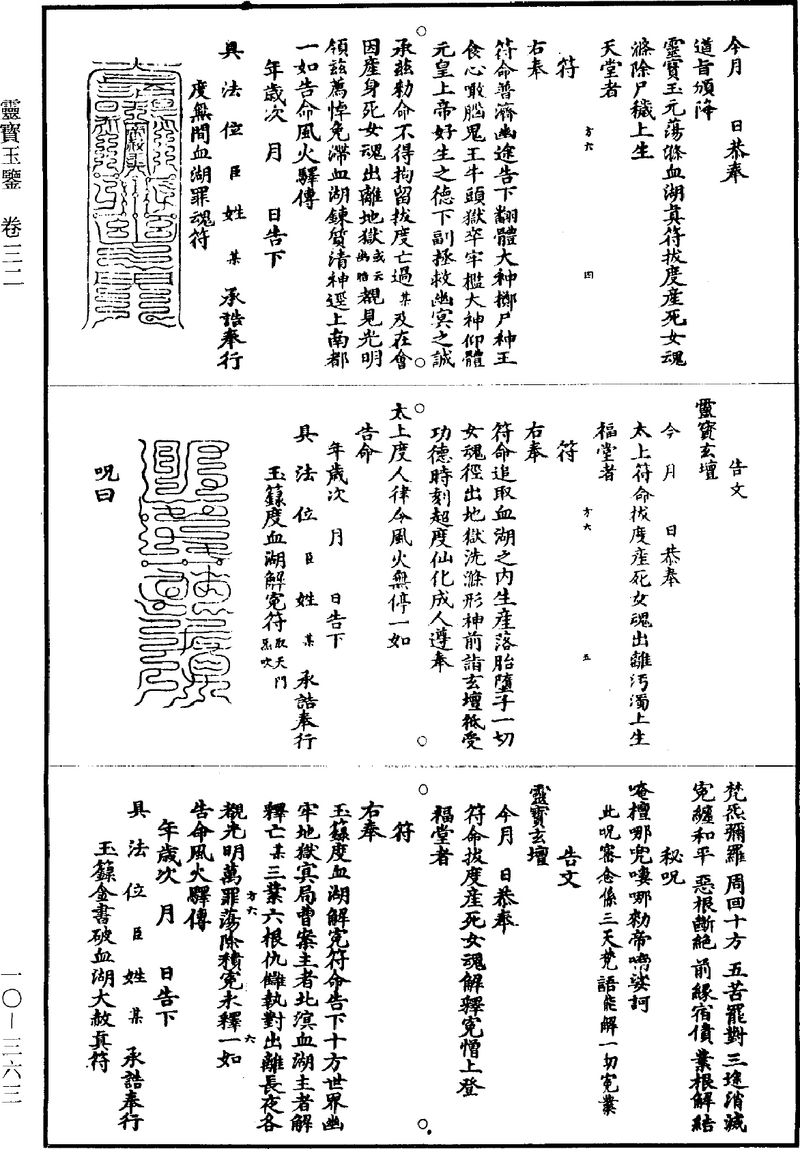 今月　日恭奉
道旨頒降
靈寶玉元蕩滌血湖真符拔度產死女魂
滌除尸穢上生
天堂者
符　方六　四
右奉
符命普濟幽途告下翻體大神擲尸神王
食心噉腦鬼王牛頭獄卒牢檻大神仰體
元皇上帝好生之德下副拯救幽冥之誠
承茲勅命不得拘留拔度亡過某及在會
因產身死女魂出離地獄或云幽暗覩見光明
領茲薦悼免滯血湖鍊質清神逕上南都
一如告命風火驛傳
年歲次　月　日告下
具法位臣姓某承誥奉行
度無間血湖罪魂符
告文
靈寶玄壇
今月　日恭奉
太上符命拔度產死女魂出離污濁上生
福堂者
符　方六　五
右奉
符命追取血湖之內生產落胎墮子一切
女魂徑出地獄洗滌形神前詣玄壇祗受
功德時刻超度仙化成人遵奉
太上度人律令風火無停一如
告命
年歲次　月　日告下
具法位臣姓某承誥奉行
玉籙度血湖解冤符取天門炁吹
呪曰
梵炁彌羅　周回十方　五苦罷對　三途消滅
冤纏和平　惡根斷絕　前緣宿債　業根解結
秘呪
唵檀哪兜嘍哪勑帝嚩娑訶
此呪審念係三天梵語能解一切冤業
告文
靈寶玄壇
今月　日恭奉
符命拔度產死女魂解釋冤憎上登
福堂者
符　方六　六
右奉
玉籙度血湖解冤符命告下十方世界幽
牢地獄冥局曹案主者北酆血湖主者解
釋亡某三業六根仇讎執對出離長夜各
覩光明萬罪蕩除積冤永釋一如
告命風火驛傳
年歲次　月　日告下
具法位臣姓某承誥奉行
玉籙金書破血湖大赦真符
靈寶玉鑒　卷三二
一〇－三六三